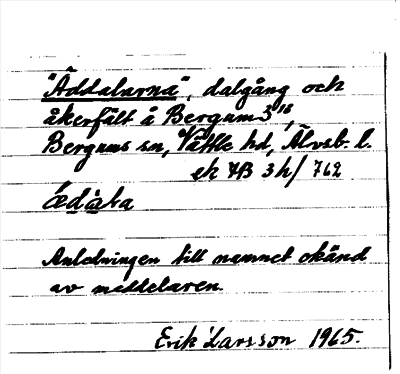 "Äddalarna", dalgång och
åkerfält å Bergum 3¹⁸,
Bergums sn, Vättle hd, Älvsb. l.
ek 7B 3h/762
Anledningen till namnet okänd
av meddelaren.
Erik Larsson 1965.